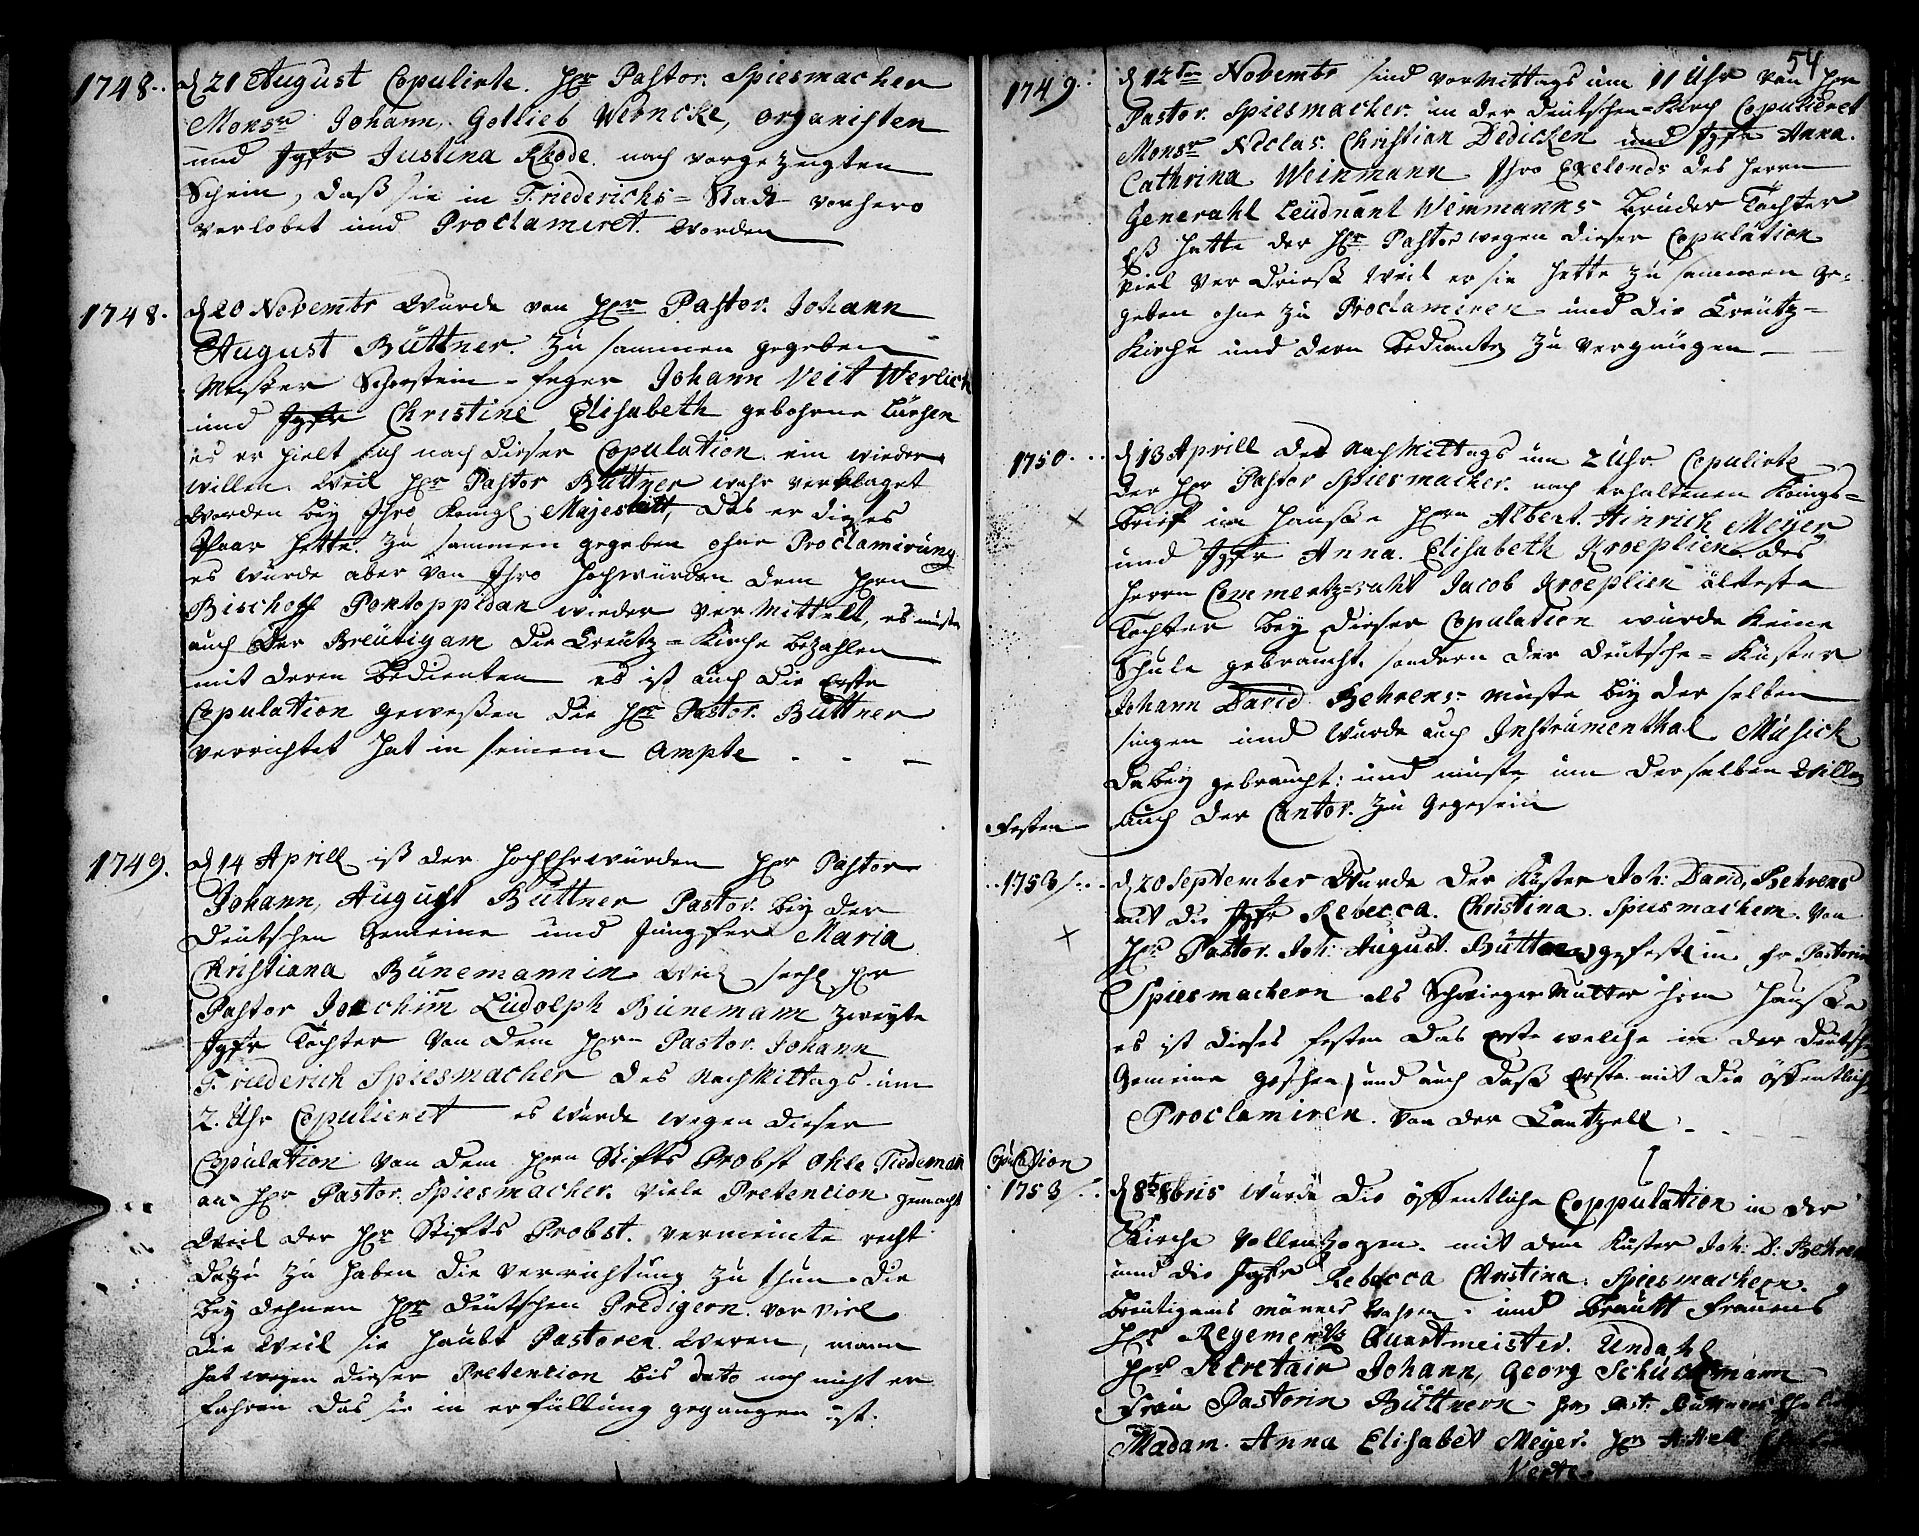 1748. d 21 August Copulirte Hr Pastor. Spiesmacher
Monsr Johann, Gotlieb Werncke, organisten
und Jgfr Justina Rhode. nach vorgezeugten
Schein, daß sie in Friederichs=Stadt vorhero
verlobet und Proclamiret worden
1748. d 20 Novembr wurde von Hrn Pastor. Johann
August Büttner. zu sammen gegeben
Meister Schorstein-feger Johann Veit Werlich
und Jgfr Christine Elisabeth gebohrne Lürsen
es er hielt sich nach dieser Copulation ein wieder
willen. weil Hr Pastor Büttner wahr verklaget
worden bey Ihro Königl Majestätt, das er dieses
Paar hette zu sammen gegeben ohne Proclamirung
es wurde aber von Ihro Hochwürden dem Hrn
Bischoff Pontoppidan wieder vermittelt, es muste
auch der Breütigam die Creütz=Kirche bezahlen
mit deren bedienten es ist auch die Erste
Copulation geweßen die Hr Pastor. Büttner
verrichtet hat in seinem Ampte
1749. d 14 Aprill ist der HochEhrwürden Hr Pastor
Johann, August Büttner Pastor. bey der
Deütschen Gemeine und Jungfer Maria
Christiana Bünemannin weil seehl Hr
Pastor Joachim Lüdolph Bünemann zweyte
Jgfr Tochter von dem Hrn Pastor. Johann
Friederich Spiesmacher des nachMittags um
2. Uhr Copulieret es wurde wegen dieser
Copulation von dem Hrn Stiffts Probst Ohle Tiedeman
an Hr Pastor. Spiesmacher. viele Pretention gemacht
weil der Hr Stiffts Probst. vermeinte recht
dazu zu haben die verrichtung zu thun die
bey dehnen Hr Deütschen Predigern. vor viel
die weil sie Haubt Pastoren weren, mann
hat wegen dieser Pretention bis dato noch nicht er
fahren das sie in erfüllung gegangen ist.
54
1749. d 12ten Novembr sind vormittags um 11 Uhr von Hrn
Pastor. Spiesmacher. in der deütschen=Kirch Copulieret
Monsr Niclas. Christian Dedicken und Jgfr Anna.
Cathrina Weinmann Ihro Exelends des Herrn
Generahl Leüdnant Weinmanns Bruder Tochter
Eß hatte der Hr Pastor wegen dieser Copulation
viel verdrieß weil er sie hette zu sammen ge=
geben ohne zu Proclamiren und die Creütz=
Kirche und dern bediente zu vergnügen
1750. d 13 Aprill des nachMittags um 2 Uhr Copulirte
der Hr Pastor Spiesmacher. nach erhaltenen Königs=
Brief im Hauße Hrn Albert. Hinrich Meyer
und Jgfr Anna. Elisabeth Kroeplien des
Herrn Commertz=raht Jacob Kroeplien älteste
Tochter bey dieser Copulation wurde keine
Schule gebraucht sondern der deütsche=Küster
Johann David Behrens muste bey der selben
singen und wurde auch Instrumenthal Musick
dabey gebraucht: und muste um derselben willen
auch der Cantor. zu gegesein
Festen
1753 d 20 September wurde der Küster Joh: David, Behrens
mit die Jgfr Rebecca. Christina. Spiesmachern. von
Hr Pastor. Joh: August. Büttner gefest in Fr Pastorin
Spiesmachern als Schwieger Mutter ihren Hauße
es ist dieses festen das Erste welche in der deütschen
Gemeine geschen und auch daß Erste mit die öffentliche
Proclamiren. von der Cantzell
Copulation
1753 d 8t 8bris wurde die öffentliche Coppulation in der
Kirche vollenzogen. mit dem Küster Joh: D: Behrens
und die Jgfr Rebecca Christina. Spiesmachern.
Breütigams männer wahren und Brautt Frauens
Hr Regements Quartmeister. Undahl
Hr Secretair Johann, Georg Schuckmann
Frau Pastorin Büttnern
Madam. Anna Elisabet Meyer.
Verte